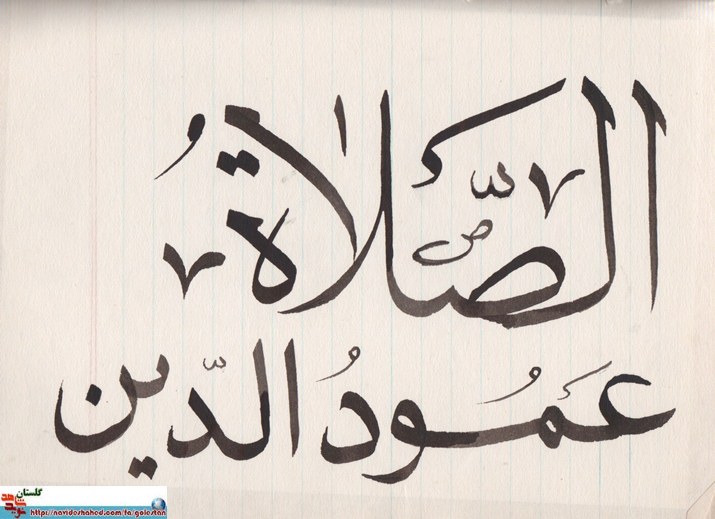 الصَّلَاةُ
عَمُودُ الدّین
گلستان
نوید شاهد
https://navideshahed.com/fa/golestan